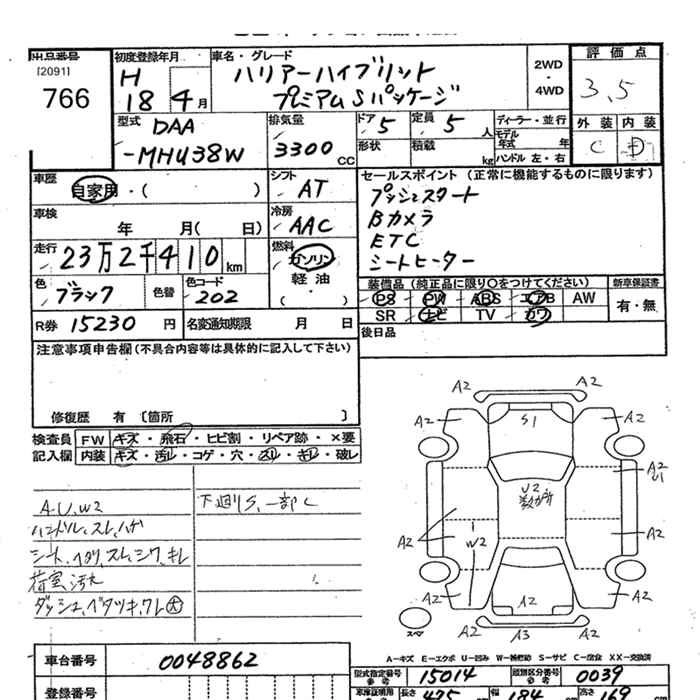 出品番号
[2091]
766
初度登録年月
H 18 4月
車名・グレード
ハリアーハイブリット
プレミアムSパッケージ
2WD
・
4WD
評価点
3.5
外装 内装
C D
型式
DAA
-MHU38W
排気量
3300 CC
ドア 5
定員 5 人
形状
積載 kg
ディーラー・並行
モデル年式 年
ハンドル 左・右
車歴
自家用・( )
シフト AT
車検 年 月( 日)
冷房 AAC
走行 23万2千410 km
燃料 ガソリン
軽油
・( )
色 ブラック
色替
色コード 202
R券 15230 円
名変通知期限 月 日
セールスポイント (正常に機能するものに限ります)
プッシュスタート
Bカメラ
ETC
シートヒーター
装備品 (純正品に限り○をつけてください)
新車保証書
PS PW ABS エアB AW
SR ナビ TV カワ
有・無
後日品
注意事項申告欄(不具合内容等は具体的に記入して下さい)
修復歴 有 〔箇所 〕
検査員記入欄
FW キズ・飛石・ヒビ割・リペア跡・×要
内装 キズ・汚レ・コゲ・穴・スレ・キレ・破レ
A.U.W2
ハンドル、スレ、ハゲ
シート、ヘタリ、スレ、シワ、キレ
荷室、汚れ
ダッシュ、ベタツキ、ワレ大
下廻りS、一部C
A2 A2
A2 A2
S1
A2
U1
U2
数カ所
A2 W2 A2
A2 A2 A2
A2 A3 A2
スペア
A-キズ E-エクボ U-凹み W-補修跡 S-サビ C-腐食 XX-交換済
車台番号 0048862
登録番号
型式指定番号
参考 15014
類別区分番号
参考 0039
長さ 475 幅 184 高さ 169